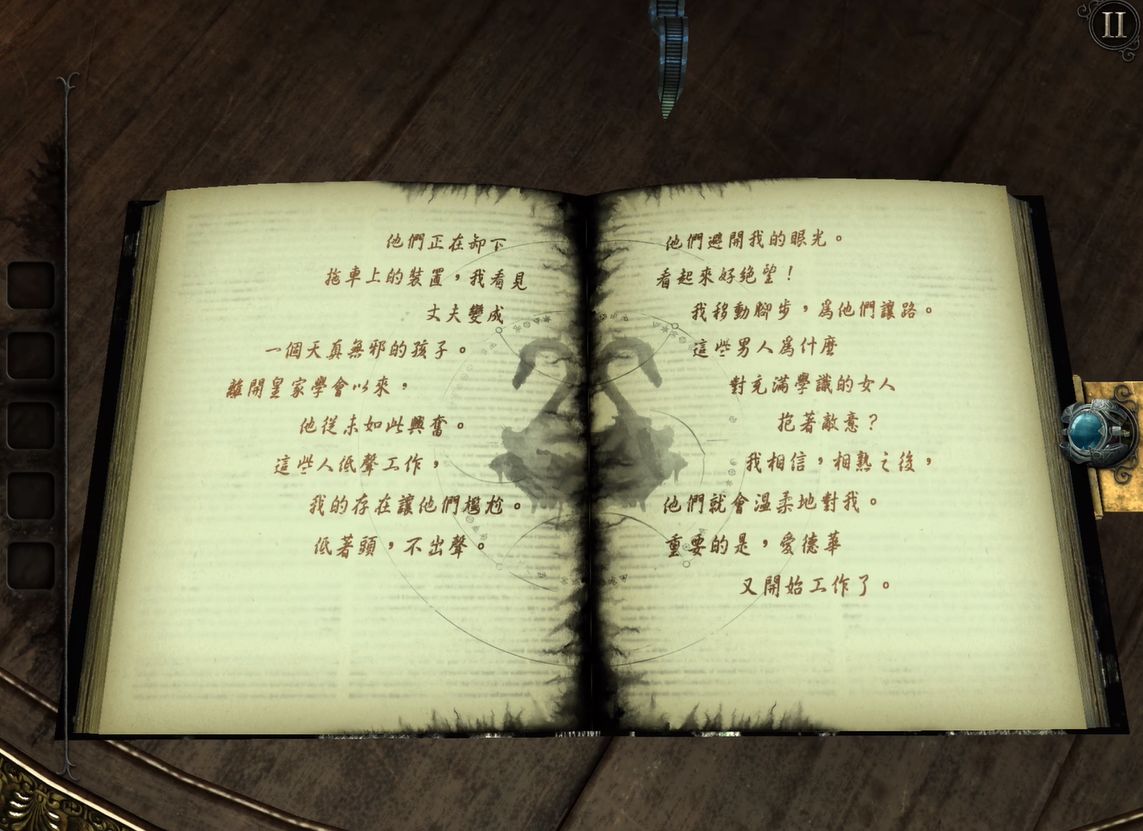 II
他們正在卸下
拖車上的裝置，我看見
丈夫變成
一個天真無邪的孩子。
離開皇家學會以來，
他從未如此興奮。
這些人低聲工作，
我的存在讓他們尷尬。
低著頭，不出聲。
他們避開我的眼光。
看起來好絕望！
我移動腳步，為他們讓路。
這些男人為什麼
對充滿學識的女人
抱著敵意？
我相信，相熟之後，
他們就會溫柔地對我。
重要的是，愛德華
又開始工作了。